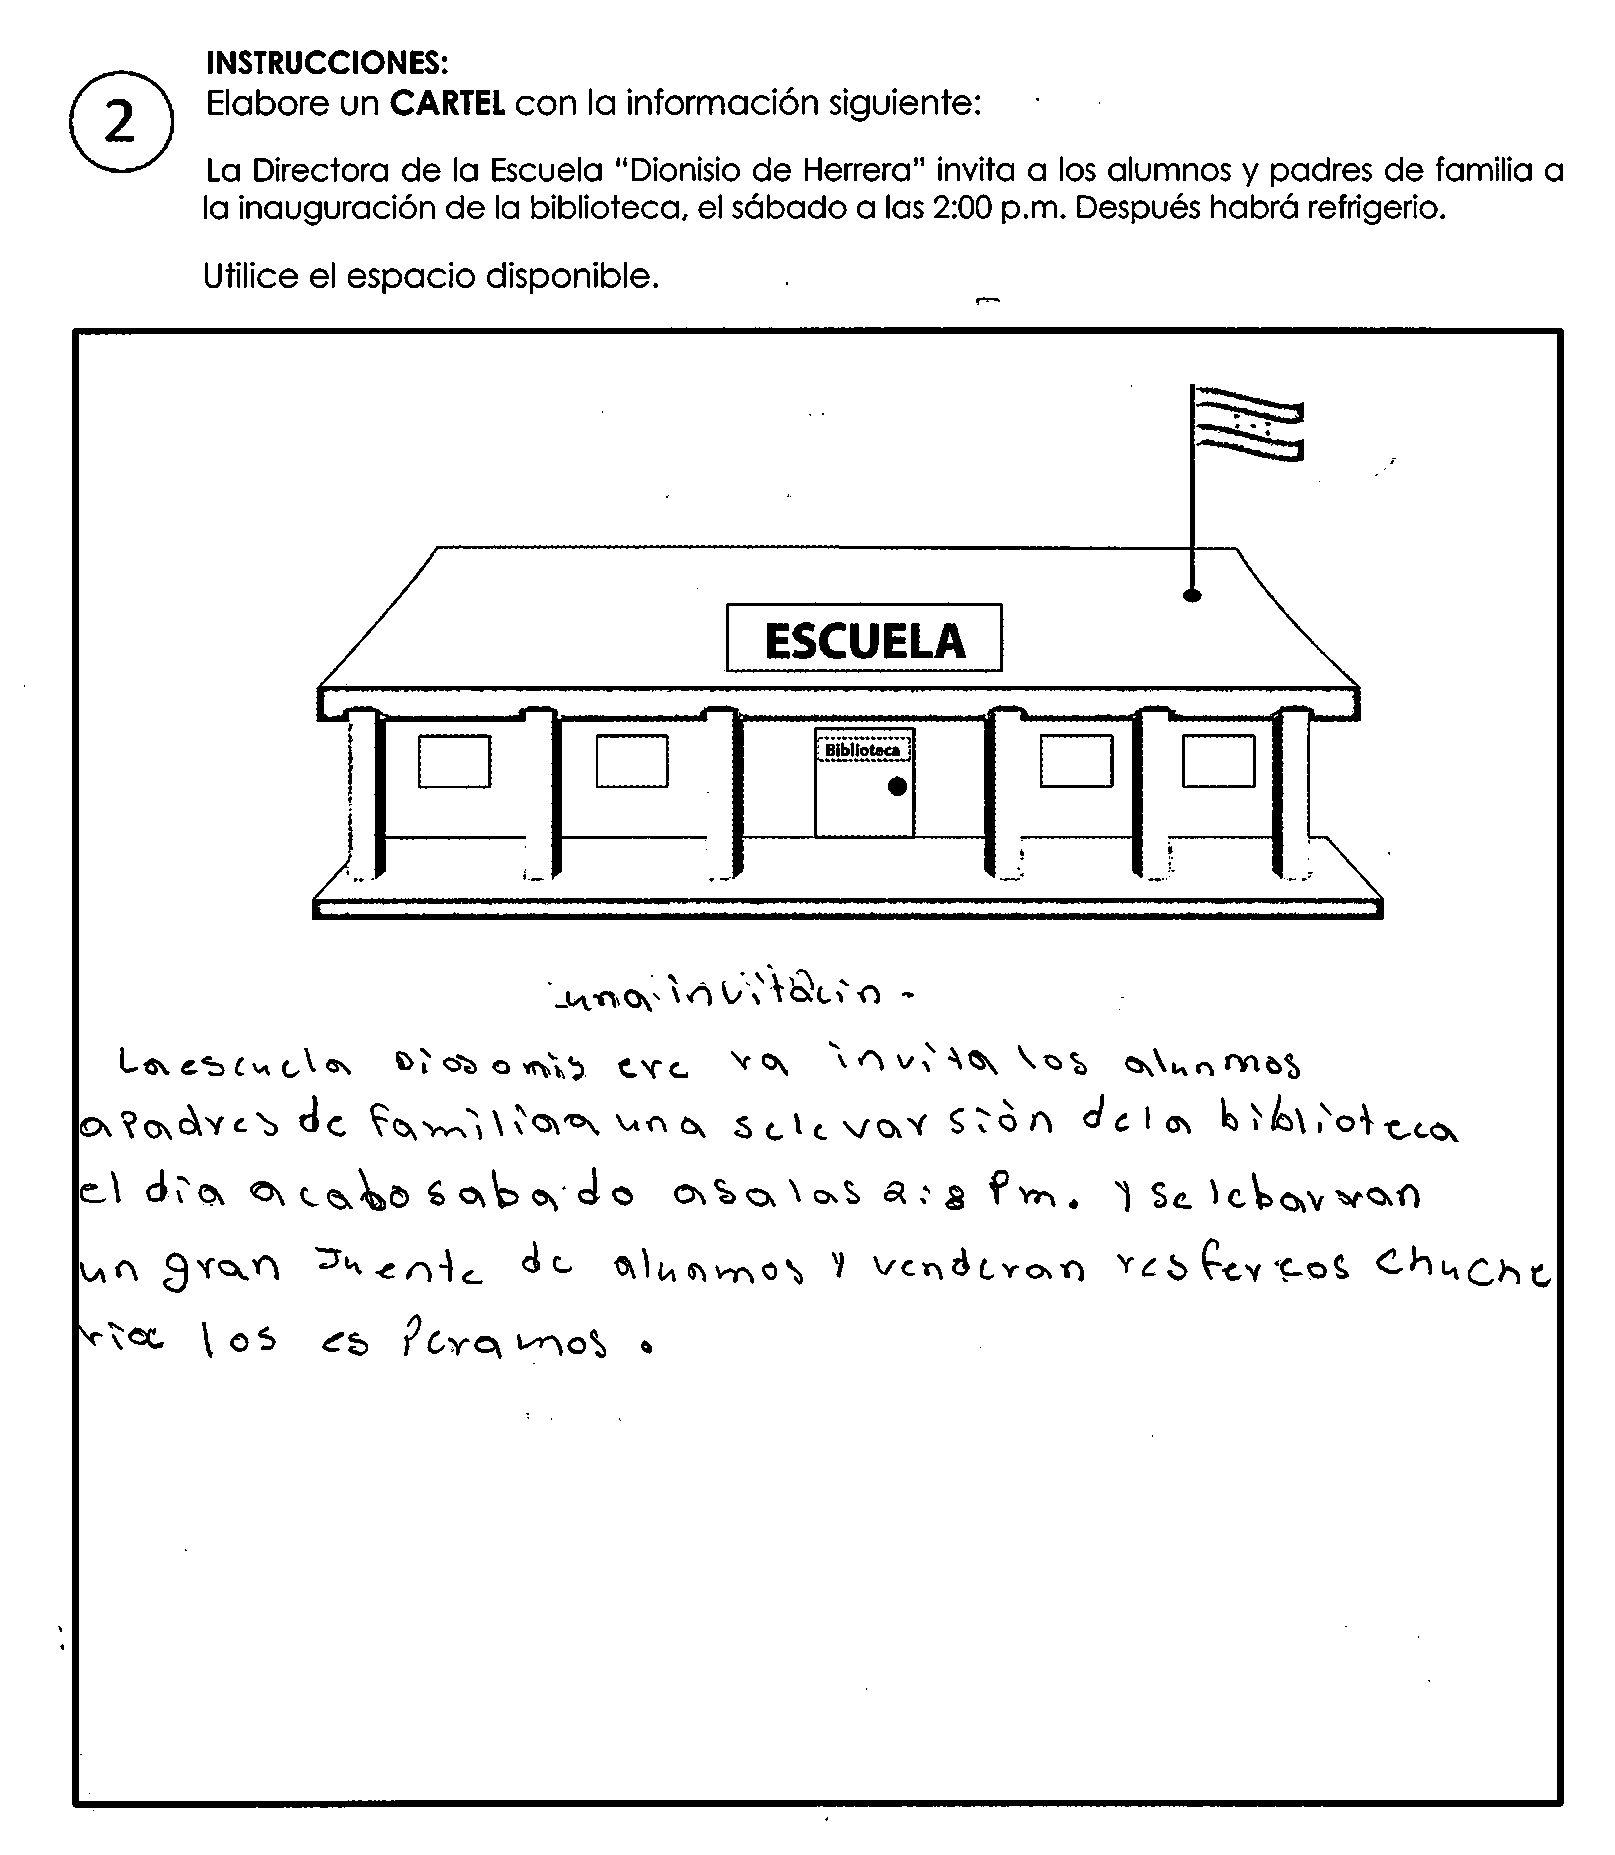 INSTRUCCIONES:
2
Elabore un CARTEL con la información siguiente:
La Directora de la Escuela "Dionisio de Herrera" invita a los alumnos y padres de familia a
la inauguración de la biblioteca, el sábado a las 2:00 p.m. Después habrá refrigerio.
Utilice el espacio disponible.
ESCUELA
Biblioteca
una invitacin -
La escuela Diosomis ere ra invita los alunmos
a Padres de familiaa una selevarsión dela biblioteca
el dia acabo sabado asalas 2:8 Pm. y selebarran
un gran Juente de alunmos y venderan resfereos chuche
ria los es Peramos.